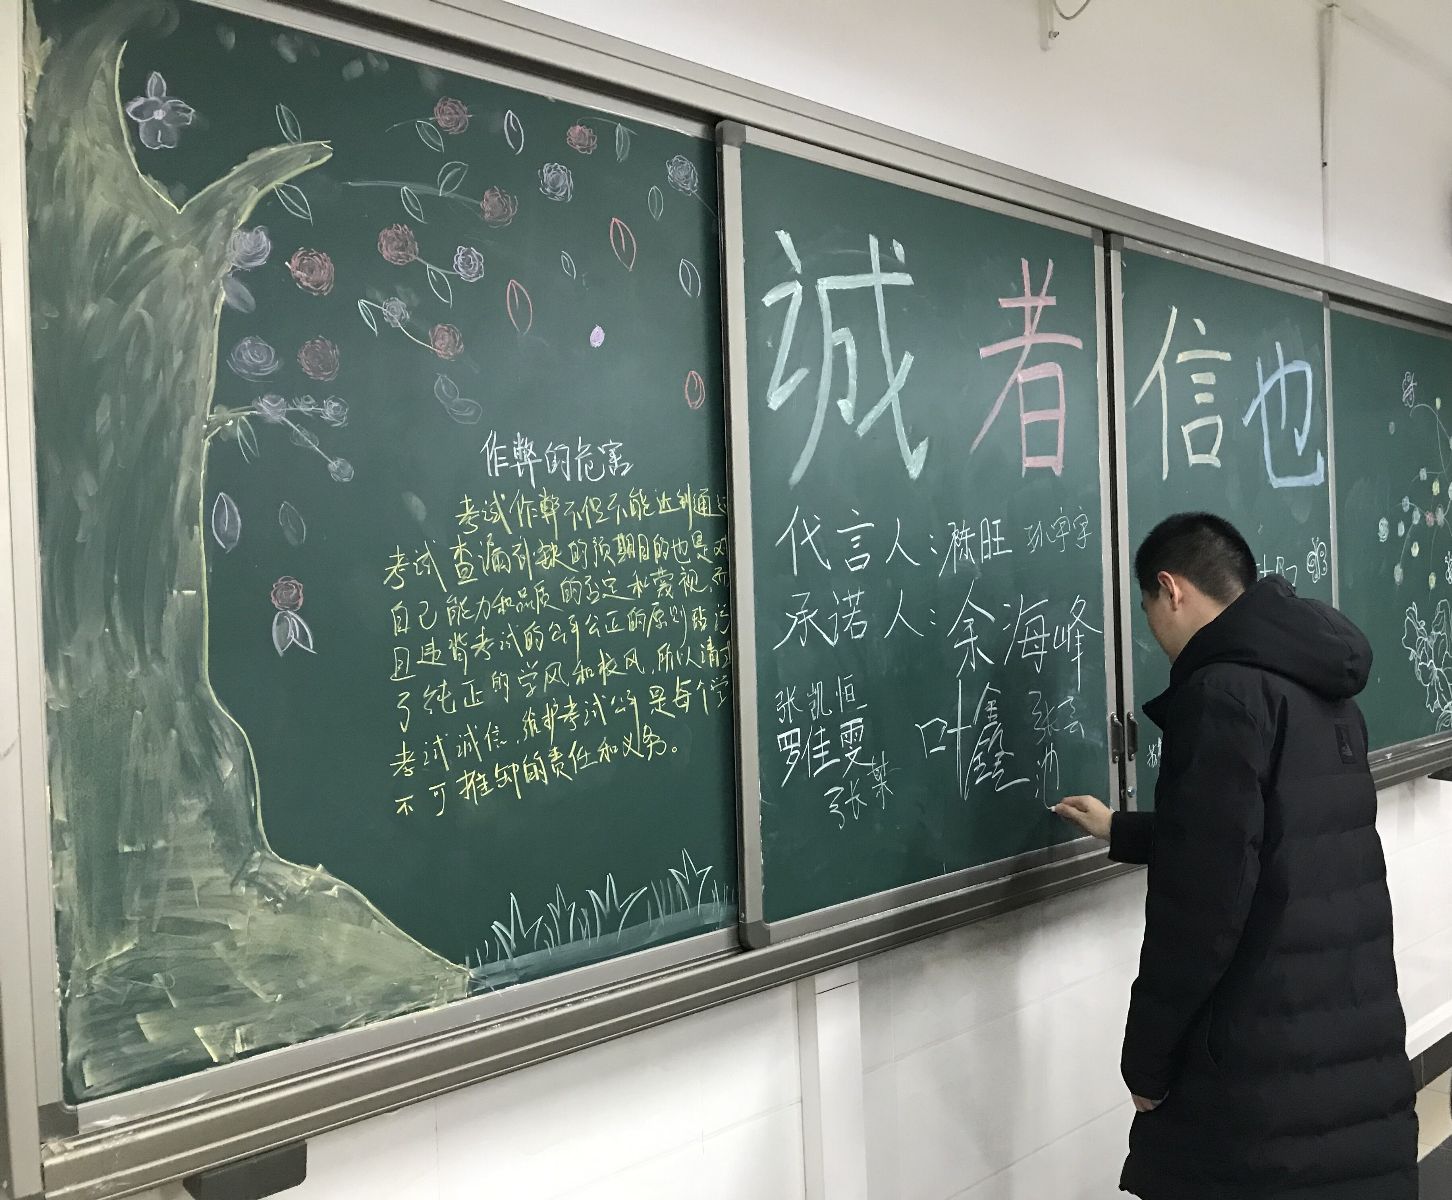 作弊的危害
考试作弊不但不能达到通过
考试查漏补缺的预期目的也是对
自己能力和品质的否定和蔑视,而
且违背考试的公平公正的原则玷污
了纯正的学风和校风,所以请
考试诚信,维护考试公平是每个学
不可推卸的责任和义务。
诚者信也
代言人:陈旺 孙宇宇
承诺人:余海峰
张凯恒
罗佳雯
叶鑫
张云池
张棐